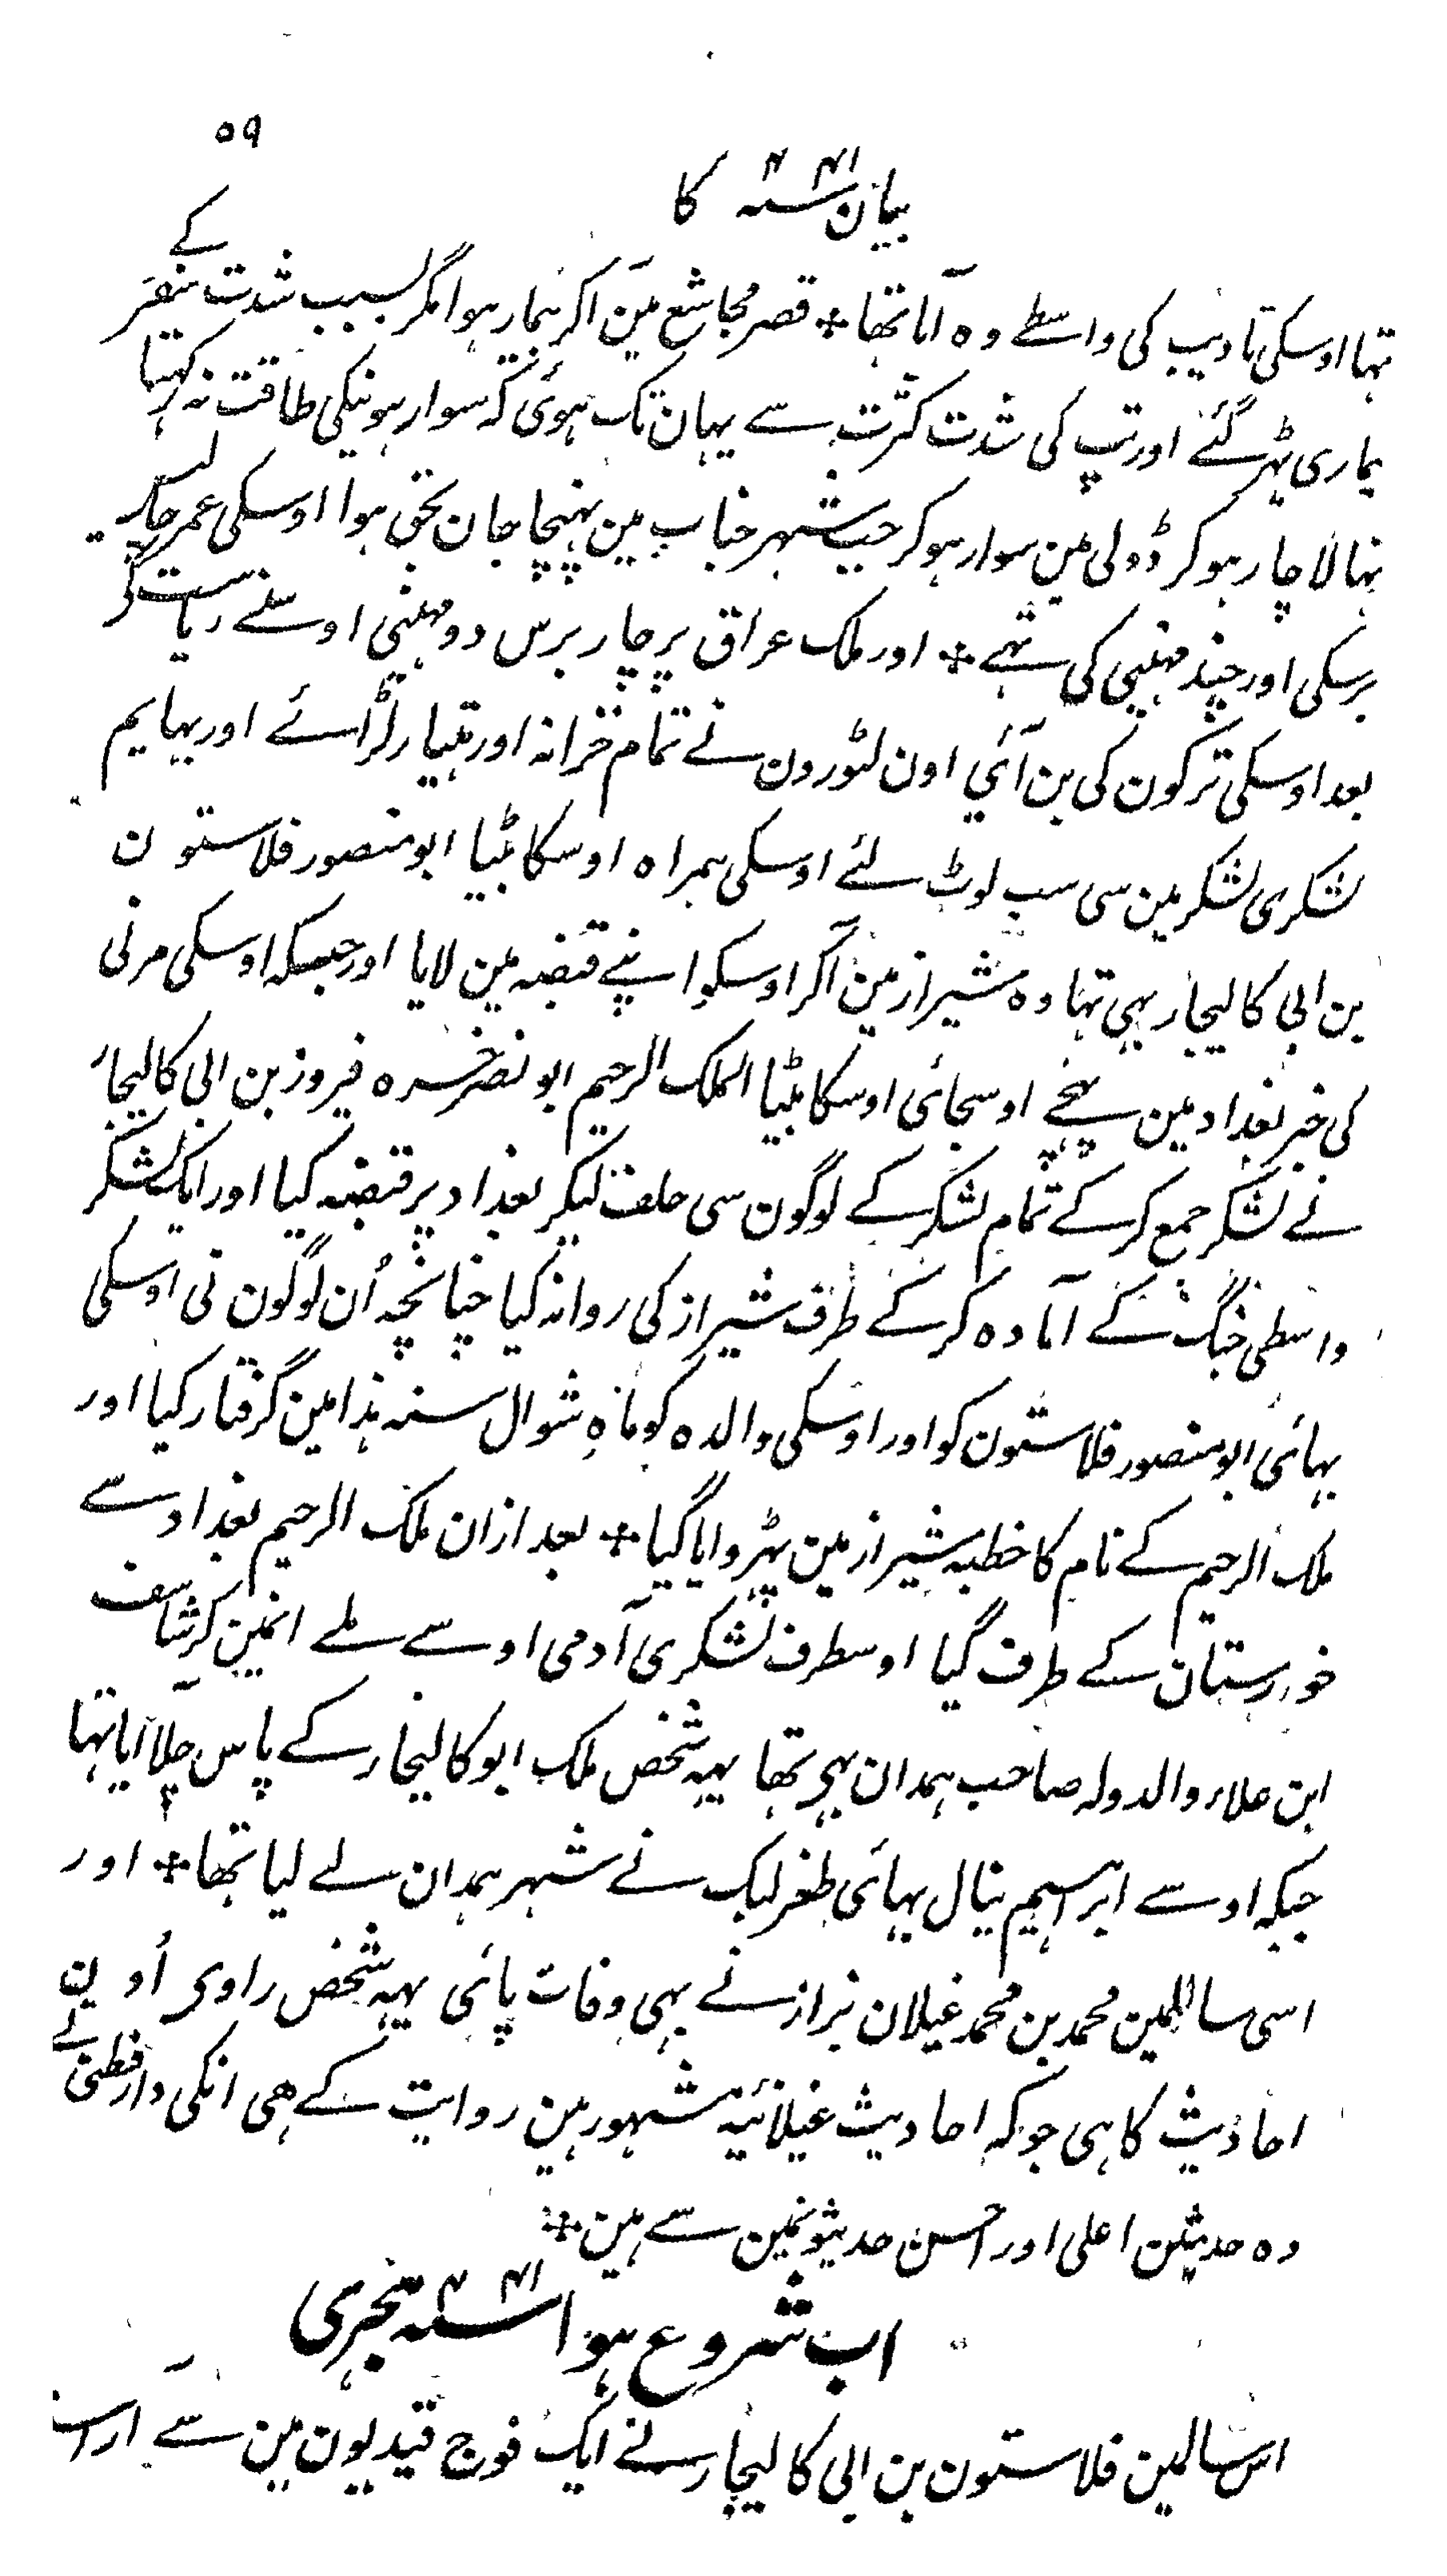 ۵۹
بیان سنہ ۴۴۱ کا
تہا اوسکی تادیب کی واسطے وہ آتا تھا ÷ قصر مجاشع مین آکر بیمار ہوا مگر بسبب شدت سفر کے
بماری ٹہر گئے اور تپ کی شدت کثرت سے یہان تک ہوئی کہ سوار ہونیکی طاقت نہ رکہتا
تہا لاچار ہو کر ڈولی مین سوار ہو کر جب شہر خناب مین پہنچا جان بحق ہوا اوسکی عمر چالیس
برسکی اور چند مہینی کی تہے ÷ اور ملک عراق پر چار برس دو مہینی اوسنے ریاست کی
بعد اوسکی ترکون کی بن آئی اون لٹورون نے تمام خزانہ اور ہتیار لڑائے اور بہایم
لشکری لشکر مین سی سب لوٹ لئے اوسکی ہمراہ اوسکا بیٹا ابو منصور فلاستون
بن ابی کالیجار بہی تہا وہ شیراز مین آکر اوسکو اپنے قبضہ مین لایا اور جبکہ اوسکی مرنی
کی خبر بغداد مین پہنچے اوسجائی اوسکا بیٹا الملک الرحیم ابو نصر خسرہ فیروز بن ابی کالیجار
نے لشکر جمع کر کے تمام لشکر کے لوگون سی حلف لیکر بغداد پر قبضہ کیا اور ایک لشکر
واسطی جنگ کے آمادہ کر کے طرف شیراز کی روانہ کیا چنانچہ اُن لوگون نی اوسکی
بہائی ابو منصور فلاستون کو اور اوسکی والدہ کو ماہِ شوال سنہ ہذا مین گرفتار کیا اور
ملک الرحیم کے نام کا خطبہ شیراز مین پڑہوایا گیا ÷ بعد ازان ملک الرحیم بغداد سے
خورستان کے طرف گیا اوسطرف لشکری آدمی اوسے ملے انمین کرشاسف
ابن علاء والدولہ صاحب ہمدان بہی تھا یہہ شخص ملک ابو کالیجار کے پاس چلا آیا تہا
جبکہ اوسے ابراہیم ینال بہائی طغرلبک نے شہر ہمدان لے لیا تھا ÷ اور
اسی سالمین محمد بن محمد غیلان بزاز نے بہی وفات پائی یہہ شخص راوی اُون
احادیث کا ہی جو کہ احادیث غیلانیہ مشہور ہین روایت کے ہی انکی دارقطنی نے
وہ حدیثین اعلی اور احسن حدیثونمین سے ہین ÷
اب شروع ہوا سنہ ۴۴۱ ہجری
اس سالمین فلاستون بن ابی کالیجار نے ایک فوج قیدیون مین سے